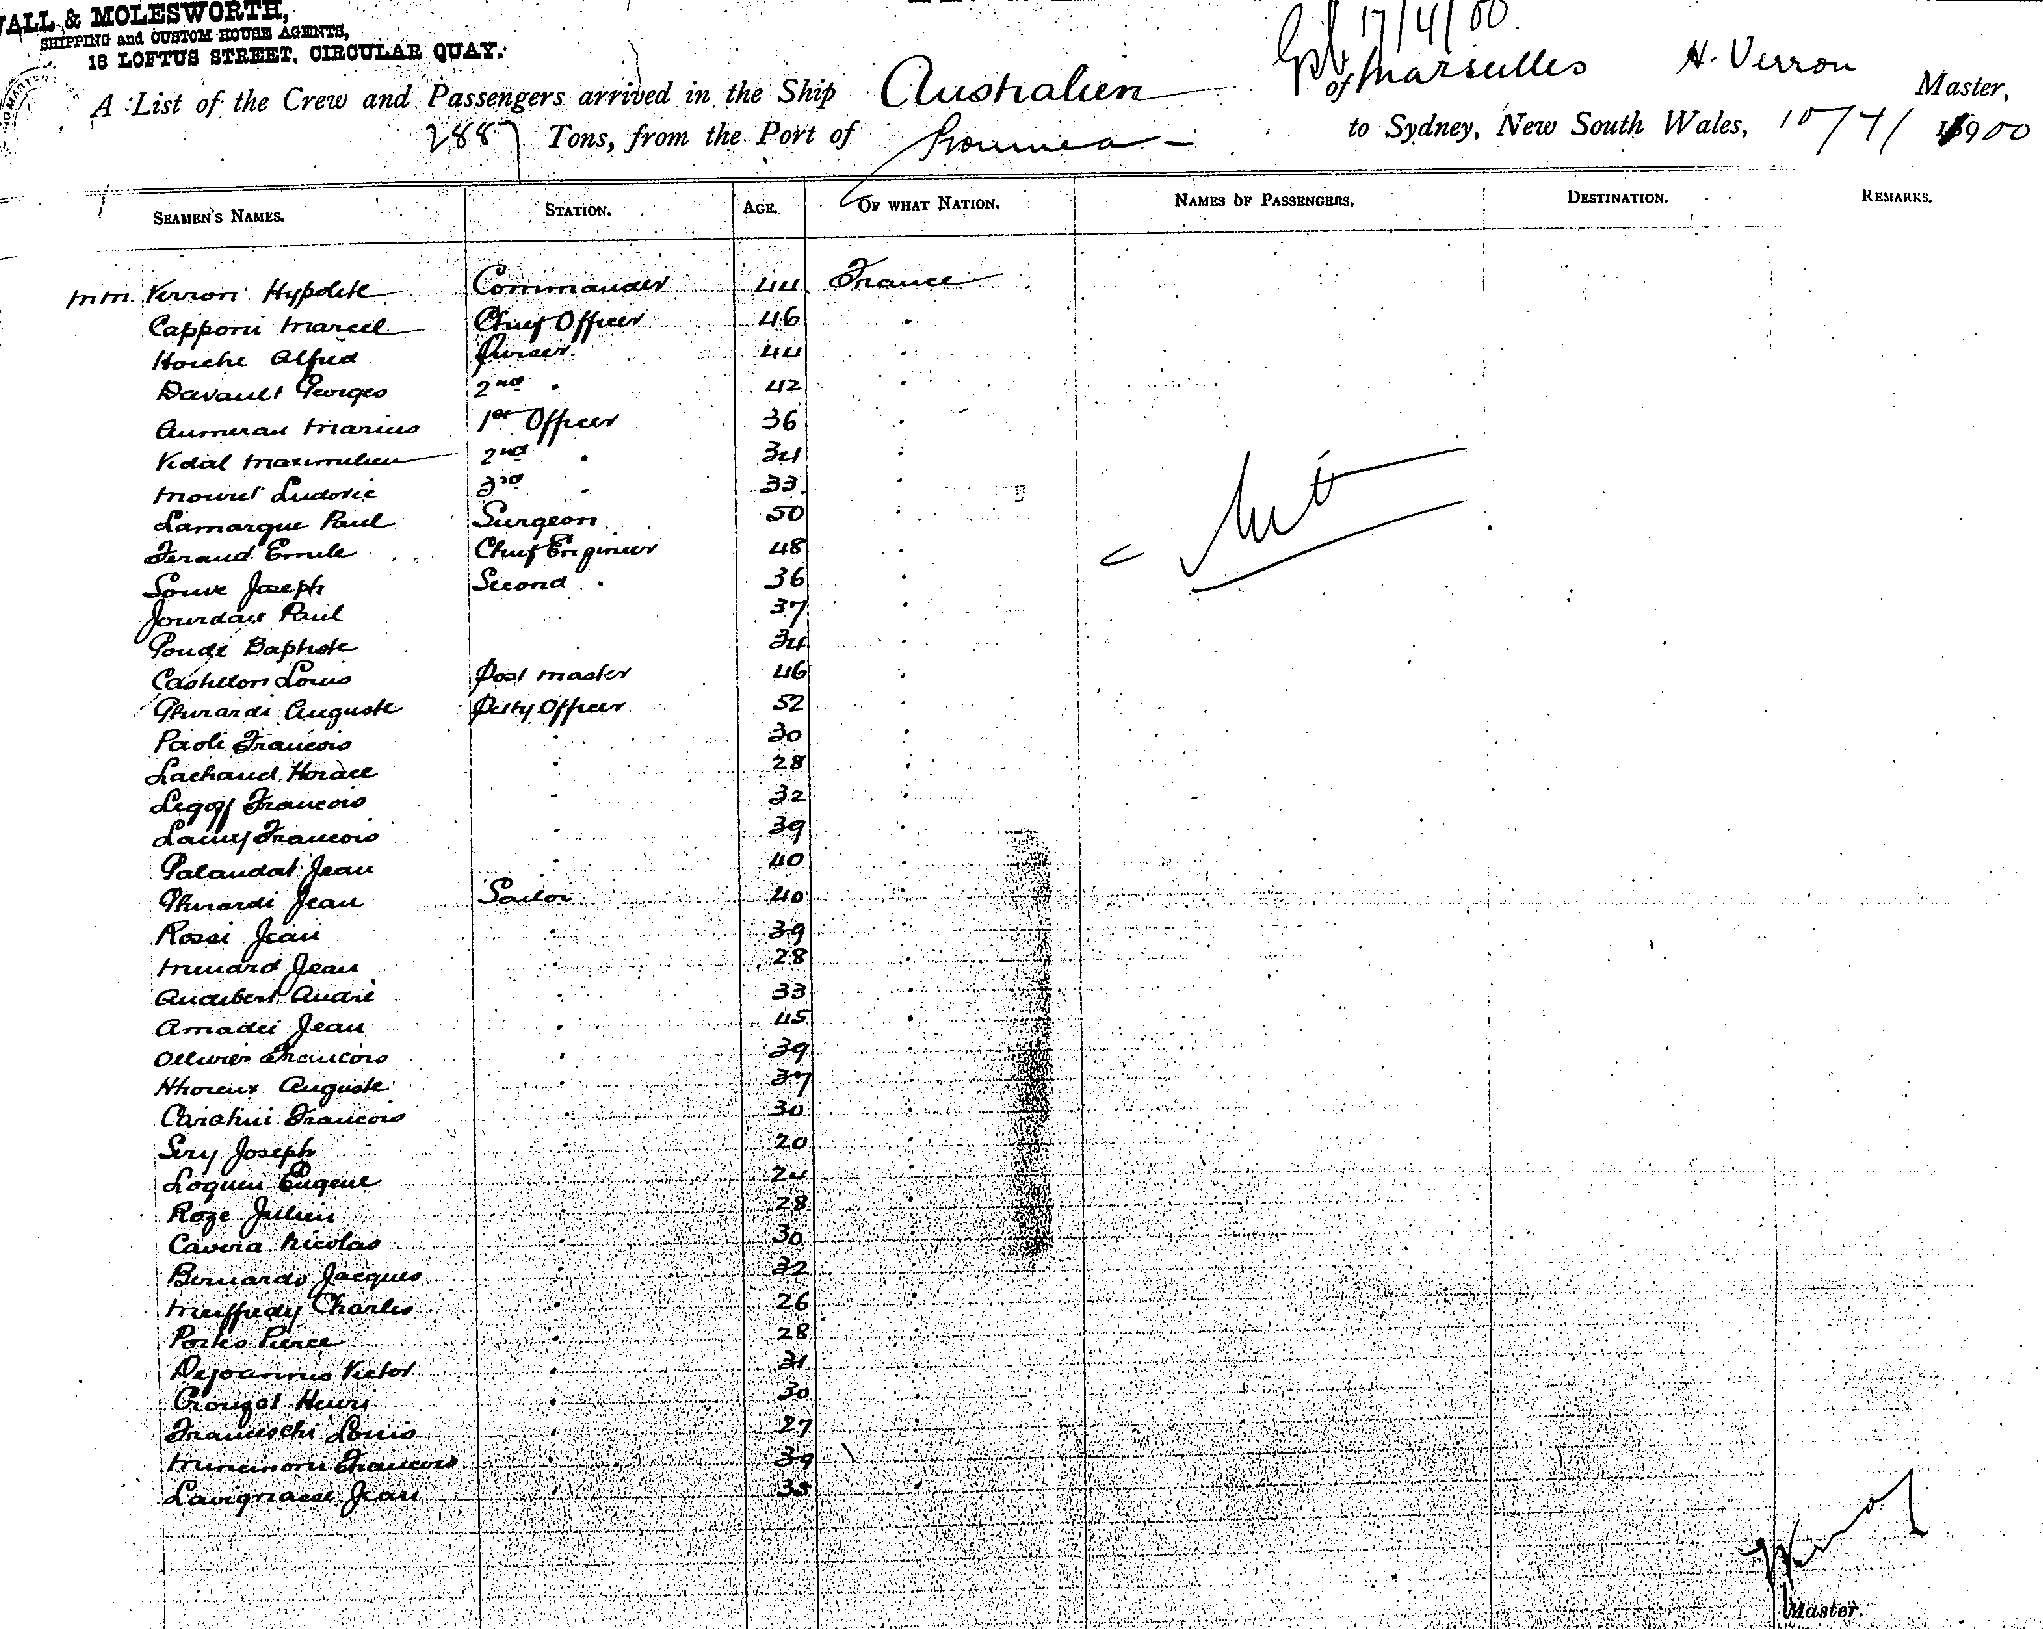 WALL & MOLESWORTH,
SHIPPING and CUSTOM HOUSE AGENTS,
18 LOFTUS STREET, CIRCULAR QUAY.
17/4/00
A List of the Crew and Passengers arrived in the Ship Australien of Marseilles H. Verron Master,
2887 Tons, from the Port of Noumea to Sydney, New South Wales, 10/4/ 1900
SEAMEN'S NAMES. STATION. AGE. OF WHAT NATION. NAMES OF PASSENGERS. DESTINATION. REMARKS.
mm. Verron Hypolite Commander 44 France
Capponi Marcel Chief Officer 46 "
Hoiche Alfred Purser 44 "
Davault Georges 2nd " 42 "
Aumeran Marius 1er Officer 36 "
Vidal Maximilien 2nd " 34 "
Mouret Ludovic 3rd " 33 "
Lamarque Paul Surgeon 50 "
Feraud Emile Chief Engineer 48 "
Joseph Second " 36 "
Jourdan Paul 37 "
Baptiste 34 "
Castellon Louis Post Master 46 "
Gherardi Auguste Petty Officer 52 "
Paoli Francois " 30 "
Lachaud Horace " 28 "
Legoff Francois " 32 "
Francois " 39 "
Palaudat Jean " 40 "
Gherardi Jean Sailor 40 "
Rossi Jean " 39 "
Menard Jean " 28 "
Audibert André " 33 "
Amadei Jean " 45 "
Ollivier Francois " 39 "
Auguste " 37 "
Francois " 30 "
Sery Joseph " 20 "
Loquen Eugene " 24 "
Roze Julien " 28 "
Nicolas " 30 "
Bernardo Jacques " 32 "
Meiffredy Charles " 26 "
Pierre " 28 "
Dejoannis Victor " 31 "
Crouzot Henri " 30 "
Franceschi Louis " 27 "
Francois " 39
Lavignasse Jean " 35 "
Master.